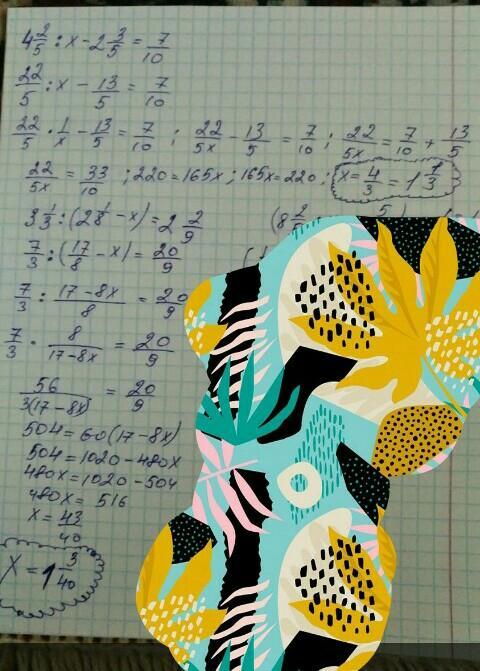 4 2/5 : x - 2 3/5 = 7/10
22/5 : x - 13/5 = 7/10
22/5 · 1/x - 13/5 = 7/10 ; 22/5x - 13/5 = 7/10 ; 22/5x = 7/10 + 13/5
22/5x = 33/10 ; 220 = 165x ; 165x = 220 ; x = 4/3 = 1 1/3
: (2 1/8 - x) = 2 2/9
7/3 : (17/8 - x) = 20/9
7/3 : 17-8x/8 = 20
7/3 · 8/17-8x = 20/9
56/3(17-8x) = 20/9
504 = 60(17-8x)
504 = 1020 - 480x
480x = 1020 - 504
480x = 516
x = 43/40
x = 1 3/40